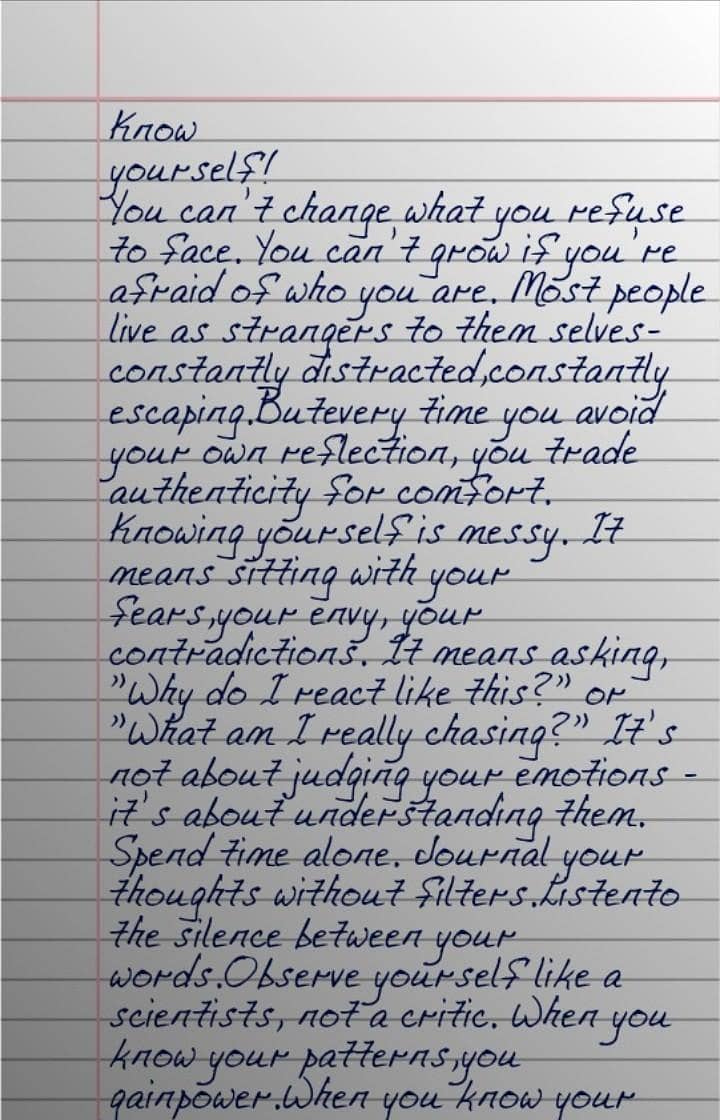 Know
yourself!
You can't change what you refuse
to face. You can't grow if you're
afraid of who you are. Most people
live as strangers to them selves-
constantly distracted,constantly
escaping.Butevery time you avoid
your own reflection, you trade
authenticity for comfort.
Knowing yourself is messy. It
means sitting with your
fears,your envy, your
contradictions. It means asking,
"Why do I react like this?" or
"What am I really chasing?" It's
not about judging your emotions -
it's about understanding them.
Spend time alone. Journal your
thoughts without filters.Listento
the silence between your
words.Observe yourself like a
scientists, not a critic. When you
know your patterns,you
gainpower.When you know your